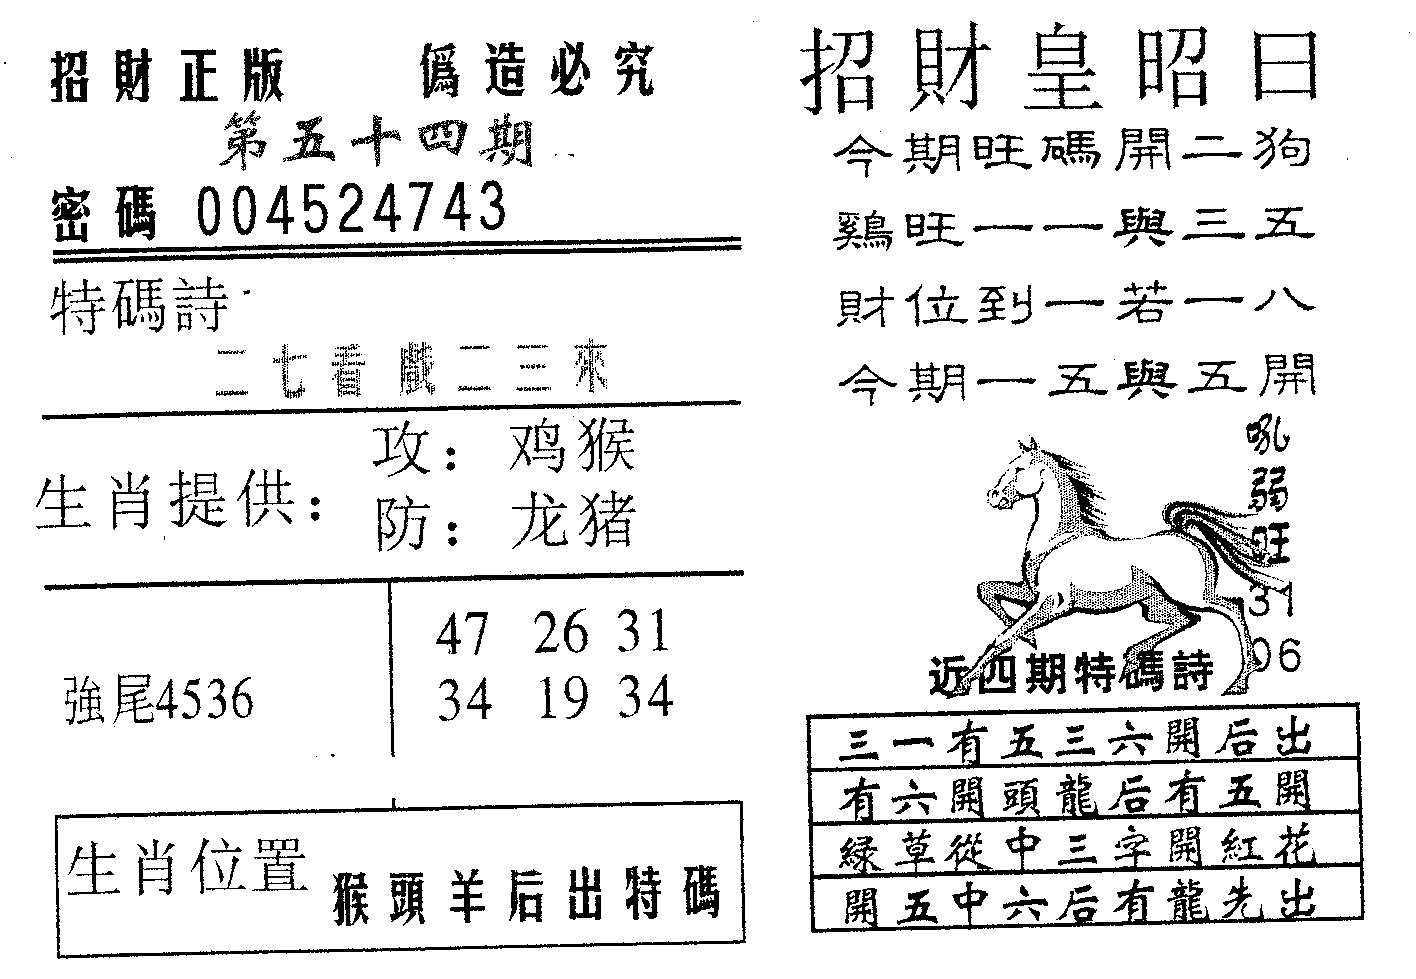 招財正版 偽造必究
第五十四期
密碼 004524743
特碼詩
二七看戲二三來
生肖提供：
攻：鸡猴
防：龙猪
強尾4536
47 26 31
34 19 34
生肖位置 猴頭羊后出特碼
招財皇昭日
今期旺碼開二狗
鷄旺一一與三五
財位到一若一八
今期一五與五開
吼弱旺
31
06
近四期特碼詩
三一有五三六開后出
有六開頭龍后有五開
緑草從中三字開紅花
開五中六后有龍先出